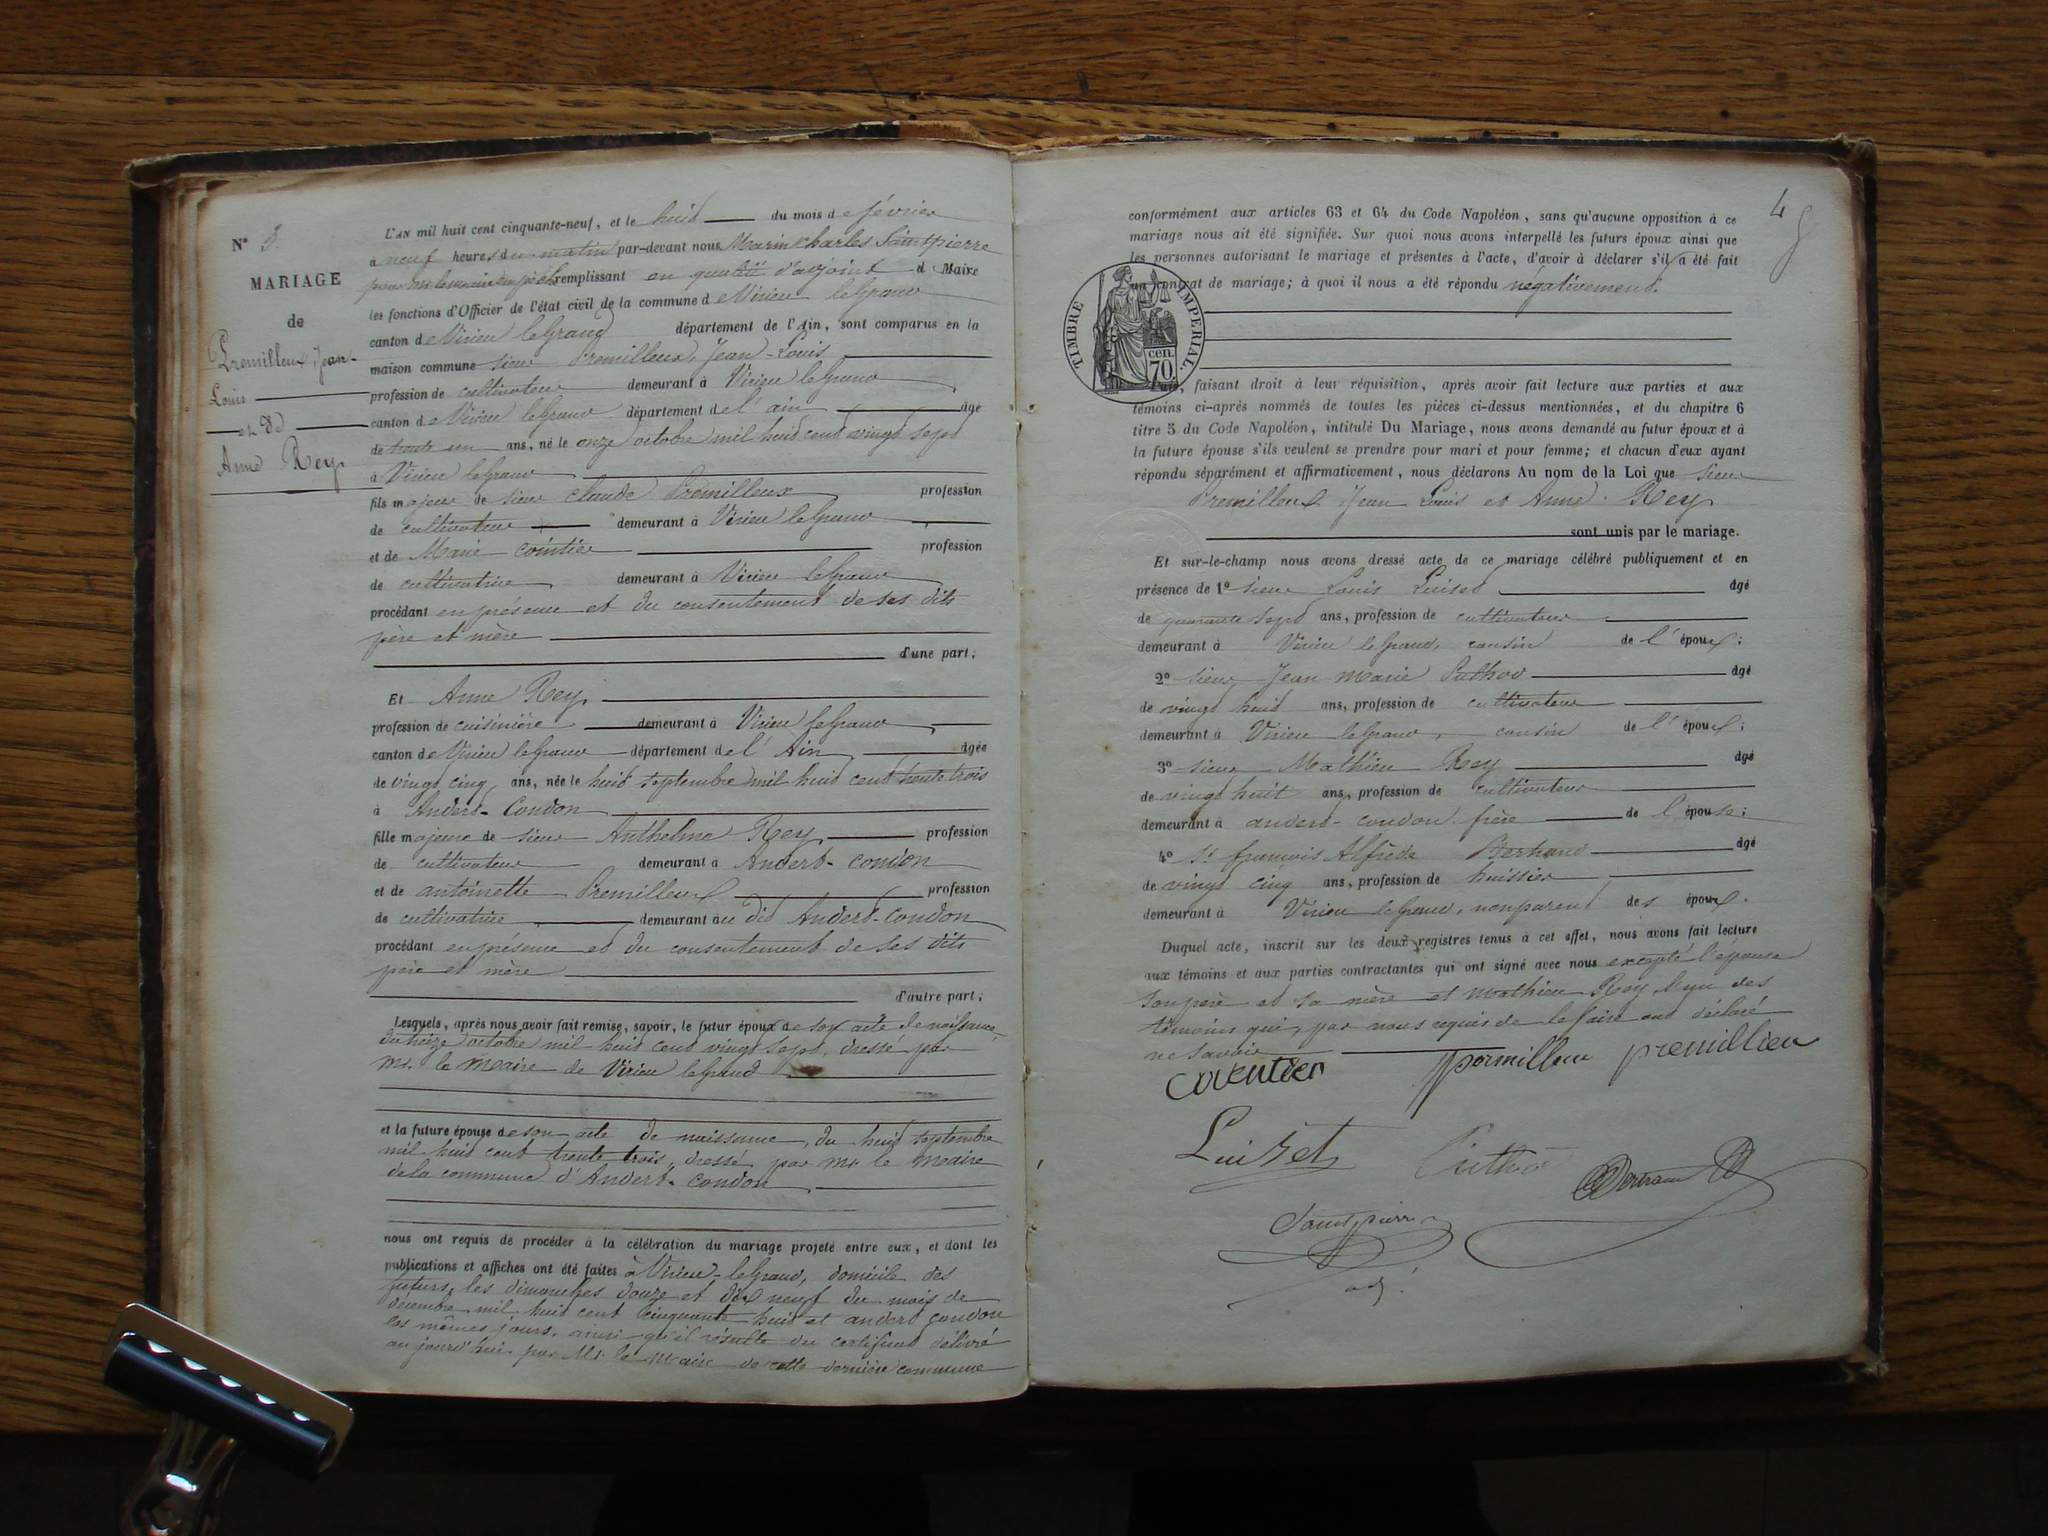 N° 3.
MARIAGE
de
Premilleux, Jean-
Louis
et de
Anne Rey
L'AN mil huit cent cinquante-neuf, et le huit du mois de février
à neuf heures du matin par-devant nous Marin Charles Saintpierre
pour Mr le maire empêché remplissant en qualité d'adjoint d Maire
les fonctions d'Officier de l'état civil de la commune de Virieu leGrand
canton de Virieu leGrand département de l'Ain, sont comparus en la
maison commune sieur Premilleux, Jean-Louis
profession de cultivateur demeurant à Virieu leGrand
canton de Virieu leGrand département de l'ain âgé
de trente un ans, né le onze octobre mil huit cent vingt sept
à Virieu leGrand
fils majeur de sieur Claude Premilleux profession
de cultivateur demeurant à Virieu leGrand
et de Marie cointier profession
de cultivatrice demeurant à Virieu leGrand
procédant en présence et du consentement de ses dits
père et mère
d'une part;
Et Anne Rey
profession de cuisinière demeurant à Virieu leGrand
canton de Virieu leGrand département de l'Ain âgée
de vingt cinq ans, née le huit septembre mil huit cent trente trois
à Andert-Condon
fille majeure de sieur Anthelme Rey profession
de cultivateur demeurant à Andert-condon
et de antoinette Premilleux profession
de cultivatrice demeurant au dit Andert-Condon
procédant en présence et du consentement de ses dits
père et mère
d'autre part;
Lesquels, après nous avoir fait remise, savoir, le futur époux de son acte de naissance
du treize octobre mil huit cent vingt sept, dressé par
Mr. le Maire de Virieu leGrand
et la future épouse de son acte de naissance, du huit septembre
mil huit cent trente trois, dressé par Mr le Maire
de la commune d'Andert-Condon
nous ont requis de procéder à la célébration du mariage projeté entre eux, et dont les
publications et affiches ont été faites à Virieu-leGrand, domicile des
futurs, les dimanches douze et dix neuf du mois de
décembre mil huit cent cinquante huit et andert condon
les mêmes jours, ainsi qu'il résulte du certificat délivré
aujourd'hui par Mr le Maire de cette dernière commune
4
conformément aux articles 63 et 64 du Code Napoléon, sans qu'aucune opposition à ce
mariage nous ait été signifiée. Sur quoi nous avons interpellé les futurs époux ainsi que
les personnes autorisant le mariage et présentes à l'acte, d'avoir à déclarer s'il a été fait
un contrat de mariage; à quoi il nous a été répondu négativement.
TIMBRE IMPERIAL.
70 cen.
faisant droit à leur réquisition, après avoir fait lecture aux parties et aux
témoins ci-après nommés de toutes les pièces ci-dessus mentionnées, et du chapitre 6
titre 5 du Code Napoléon, intitulé Du Mariage, nous avons demandé au futur époux et à
la future épouse s'ils veulent se prendre pour mari et pour femme; et chacun d'eux ayant
répondu séparément et affirmativement, nous déclarons Au nom de la Loi que sieur
Premilleux Jean Louis et Anne Rey
sont unis par le mariage.
Et sur-le-champ nous avons dressé acte de ce mariage célébré publiquement et en
présence de 1° sieur Louis Luiset âgé
de quarante sept ans, profession de cultivateur
demeurant à Virieu leGrand, cousin de l'époux;
2° sieur Jean Marie Puthod âgé
de vingt huit ans, profession de cultivateur
demeurant à Virieu leGrand, cousin de l'époux;
3° sieur Mathieu Rey âgé
de vingt huit ans, profession de cultivateur
demeurant à andert-condon frère de l'épouse;
4° Sr françois Alfrède Bertrand âgé
de vingt cinq ans, profession de huissier
demeurant à Virieu leGrand, non parent des époux.
Duquel acte, inscrit sur les deux registres tenus à cet effet, nous avons fait lecture
aux témoins et aux parties contractantes qui ont signé avec nous excepté l'épouse
son père et sa mère et Mathieu Rey l'un des
témoins qui, par nous requis de le faire ont déclaré
ne savoir
premillieu
Luizet
Puthod
Bertrand
Saintpierre
adj.